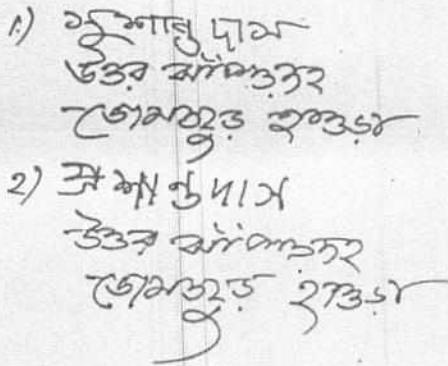 ১) সুশান্ত দাস
উত্তর ঝাঁপড়দহ
ডোমজুড় হাওড়া
২) প্রশান্ত দাস
উত্তর ঝাঁপড়দহ
ডোমজুড় হাওড়া